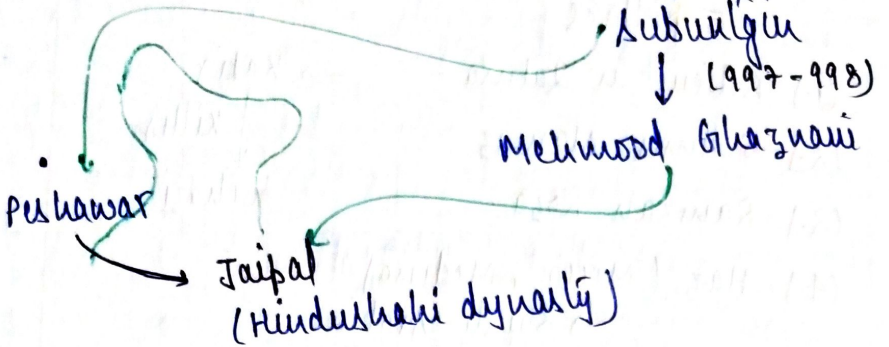 Subuktgin
(997-998)
Mehmood Ghaznavi
Peshawar
Jaipal
(Hindushahi dynasty)